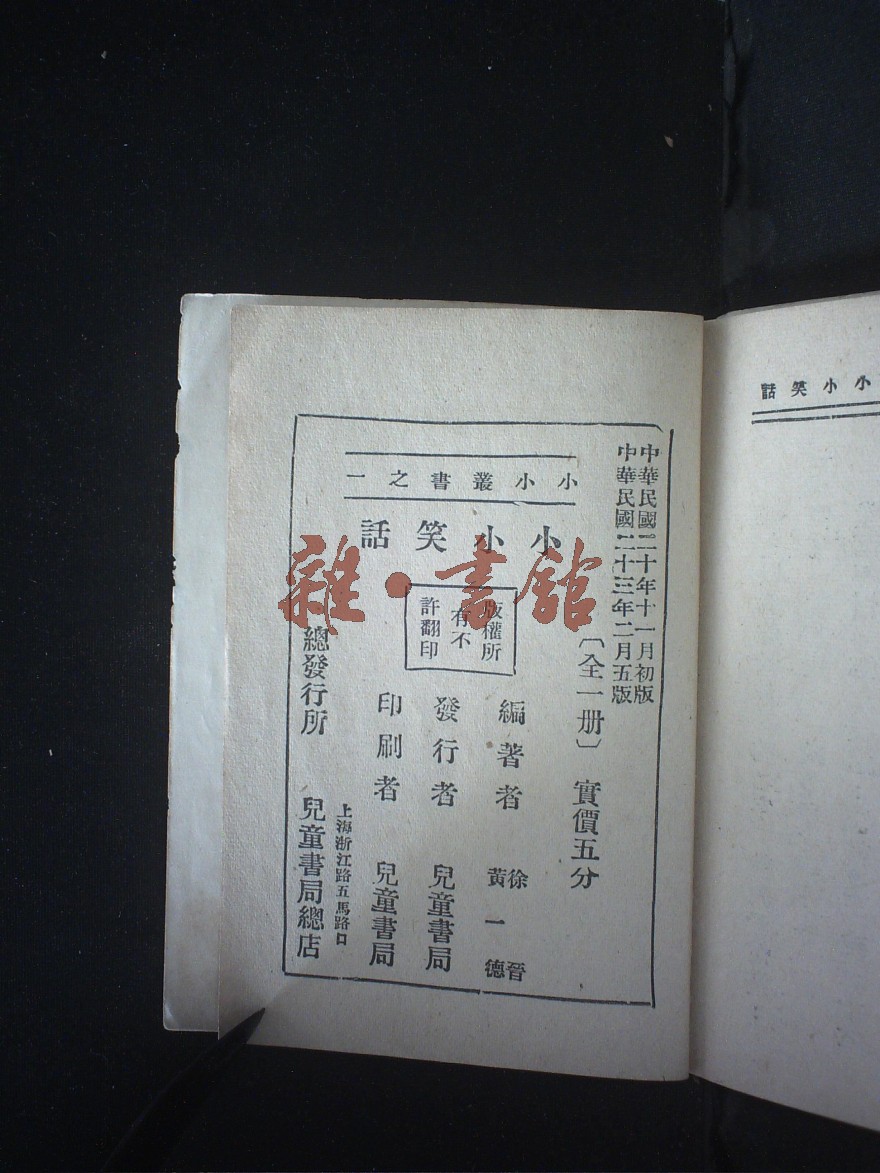 小小笑話
中華民國二十年十一月初版
中華民國二十三年二月五版
小小叢書之一
小小笑話
版權所
有不
許翻印
〔全一册〕 實價五分
編著者 徐晉 黃一德
發行者 兒童書局
印刷者 兒童書局
上海浙江路五馬路口
總發行所 兒童書局總店
雜·書館